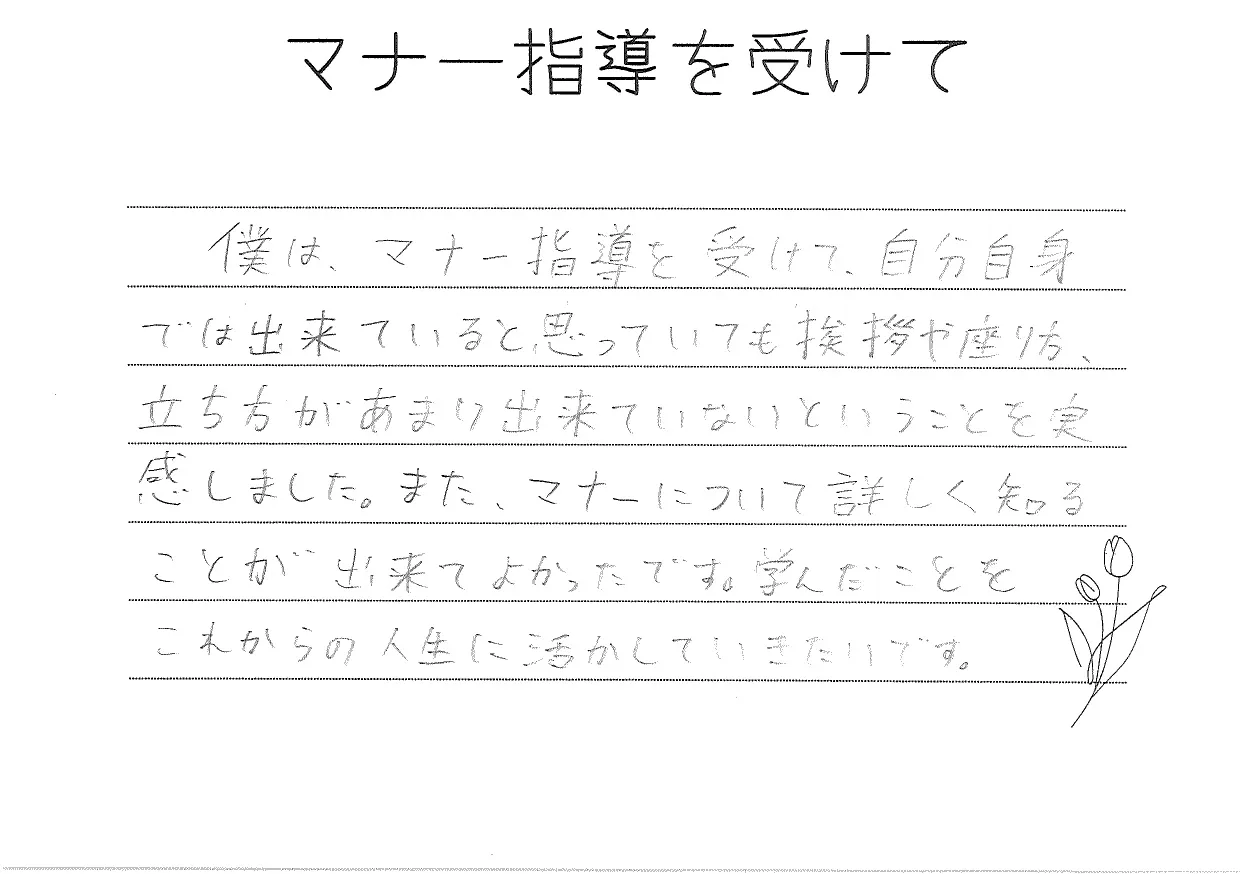 マナー指導を受けて
僕は、マナー指導を受けて、自分自身
では出来ていると思っていても挨拶や座り方、
立ち方があまり出来ていないということを実
感しました。また、マナーについて詳しく知る
ことが出来てよかったです。学んだことを
これからの人生に活かしていきたいです。